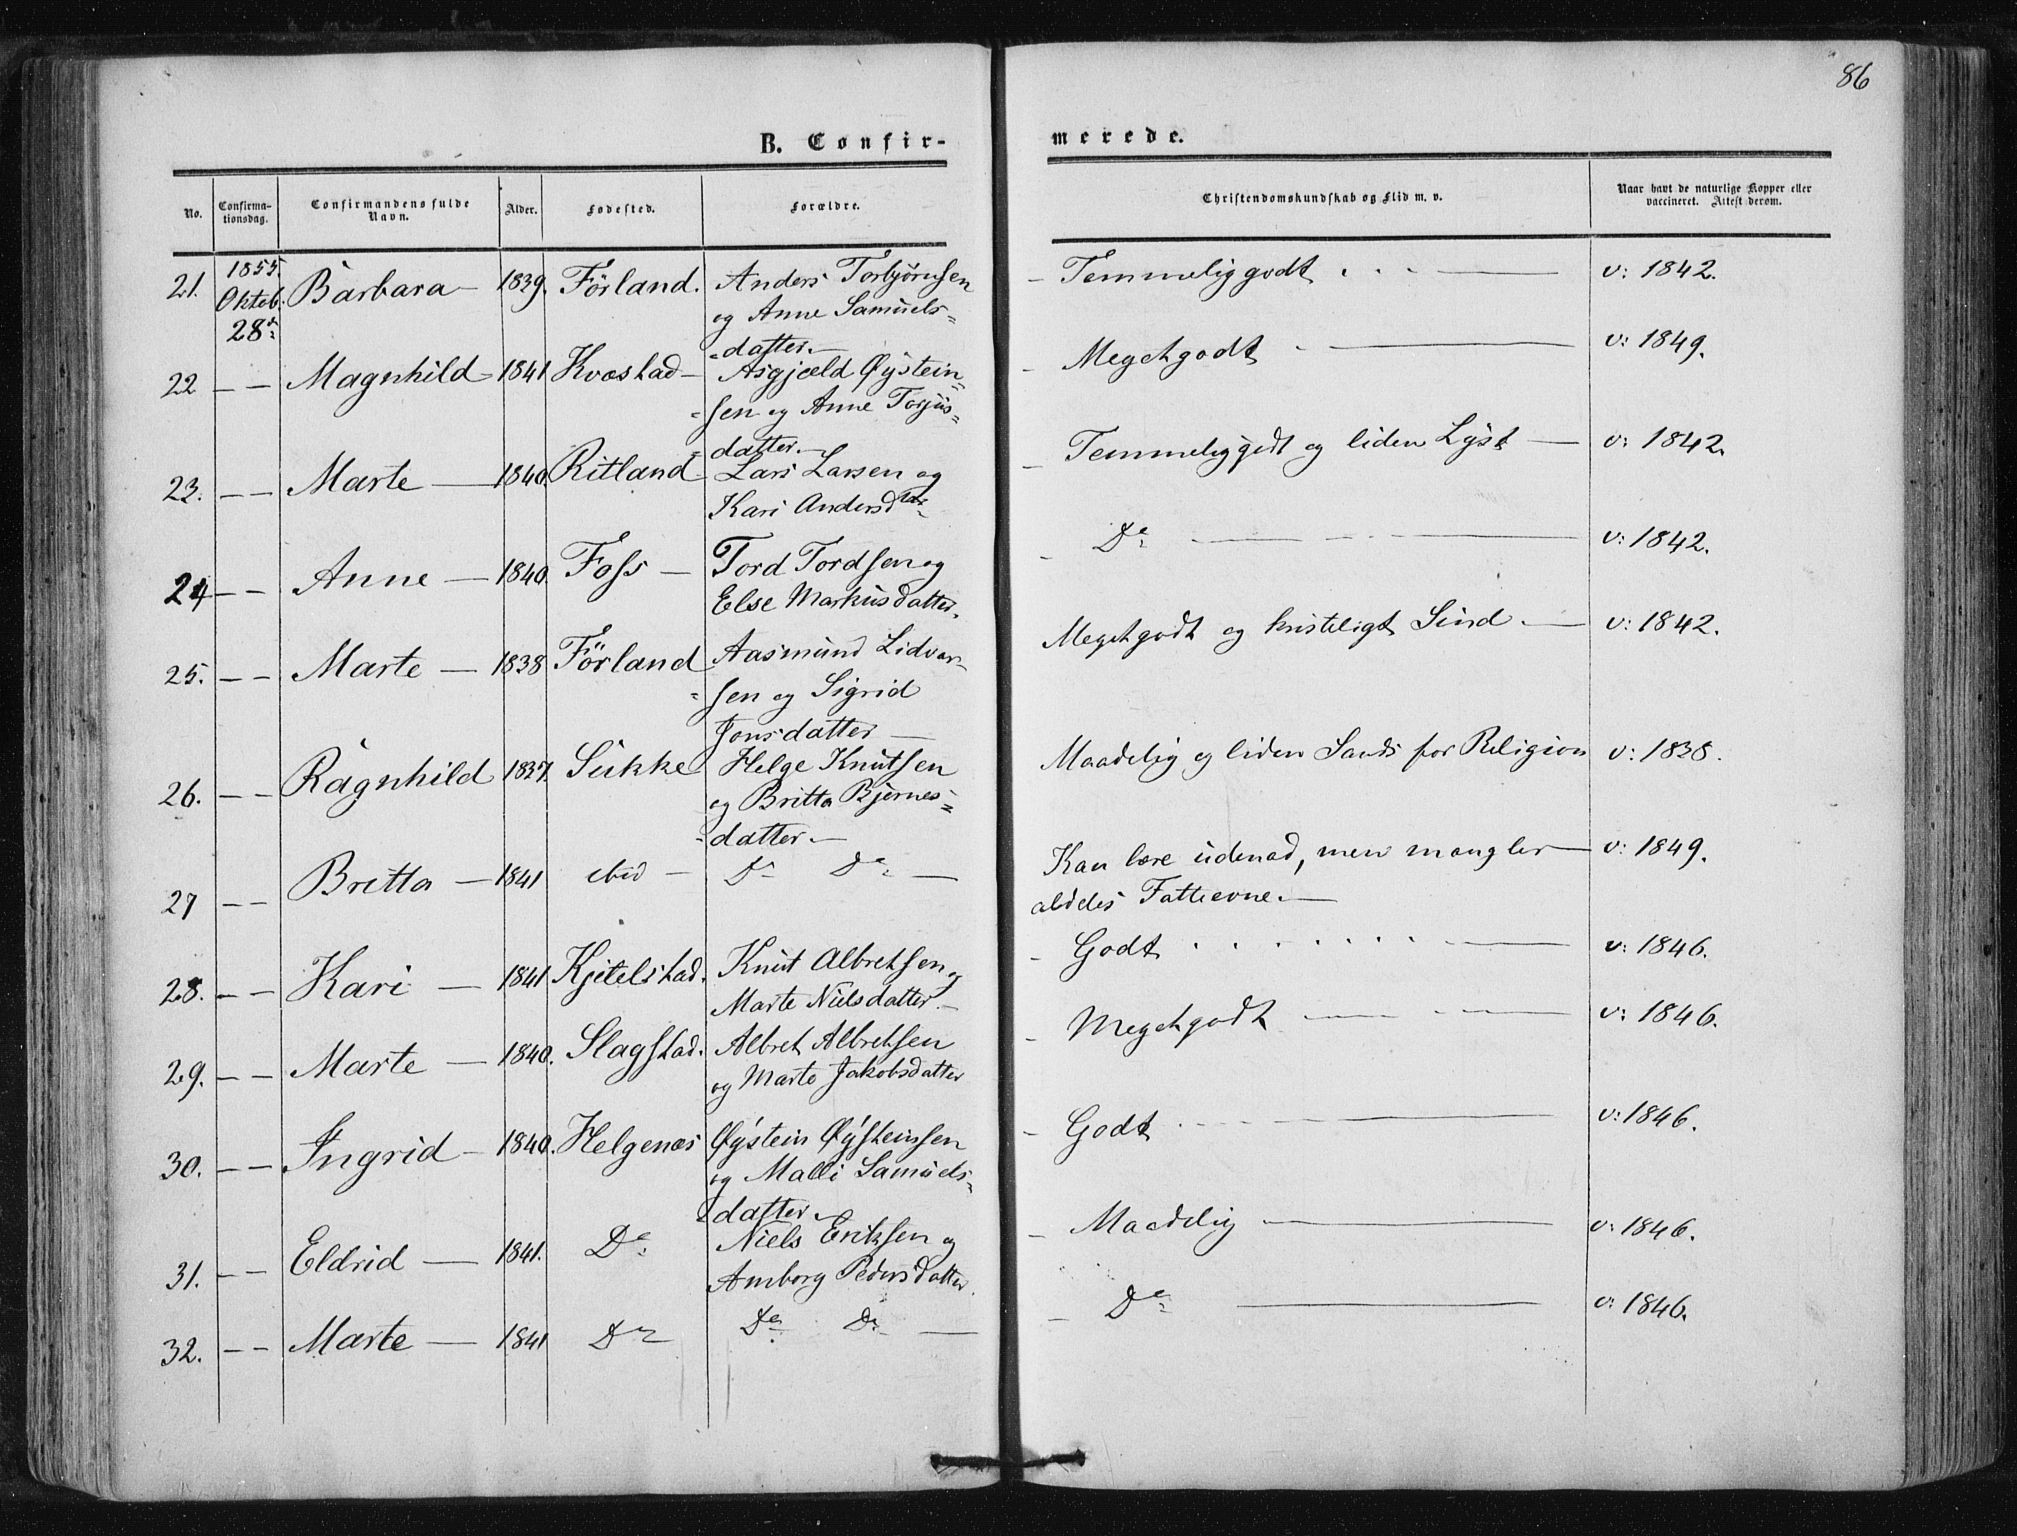 86
B. Confir-
merede.
No.
Confirma-
tionsdag.
Confirmandens fulde
Navn.
Alder.
Fødested.
Forældre.
Christendomskundskab og Flid m. v.
Naar havt de naturlige Kopper eller
vaccineret. Attest derom.
21. 1855 Oktob. 28d: Barbara — 1839. Förland. Anders Torbjørnsen
og Anne Samuels=
=datter. —
- Temmelig godt . . . — v: 1842.
22 — — Magnhild 1841 Kvæstad — Asgjæld Øystein=
=sen og Anne Torjus=
=datter. —
- Megetgodt — v: 1849.
23. — — Marte — 1840. Ritland Lars Larsen og
Kari Andersdtr
- Temmeliggodt og liden Lyst — v: 1842.
24 — — Anne — 1840. Foss — Tord Tordsen og
Else Markusdatter.
- Do — v: 1842.
25. — — Marte — 1838 Förland Aasmund Lidvar=
=sen og Sigrid
Jonsdatter —
Megetgodt og kristeligt Sind. — v: 1842.
26. — — Ragnhild 1837. Sukke Helge Knutsen
og Britta Bjørnes=
=datter. —
Maadelig og liden Sands for Religion v: 1838.
27 — — Britta — 1841 ibid — Do Do —
Kan lære udenad, men mangler — v: 1849.
aldeles Fatteevne. —
28. — — Kari — 1841 Kjitelstad. Knut Albretsen og
Marte Nielsdatter. —
- Godt . . . . . . . — v: 1846.
29. — — Marte — 1840. Slagstad. Albret Albretsen
og Marte Jakobsdatter
- Megetgodt — v: 1846.
30. — — Ingrid — 1840. Helgenæs Øystein Øysteinsen
og Malli Samuels=
=datter.
- Godt — v: 1846.
31. — — Eldrid — 1841. Do Niels Eriksen og
Amborg Pedersdatter.
- Maadelig — v: 1846.
32. — — Marte — 1841 Do Do Do —
- Do — v: 1846.